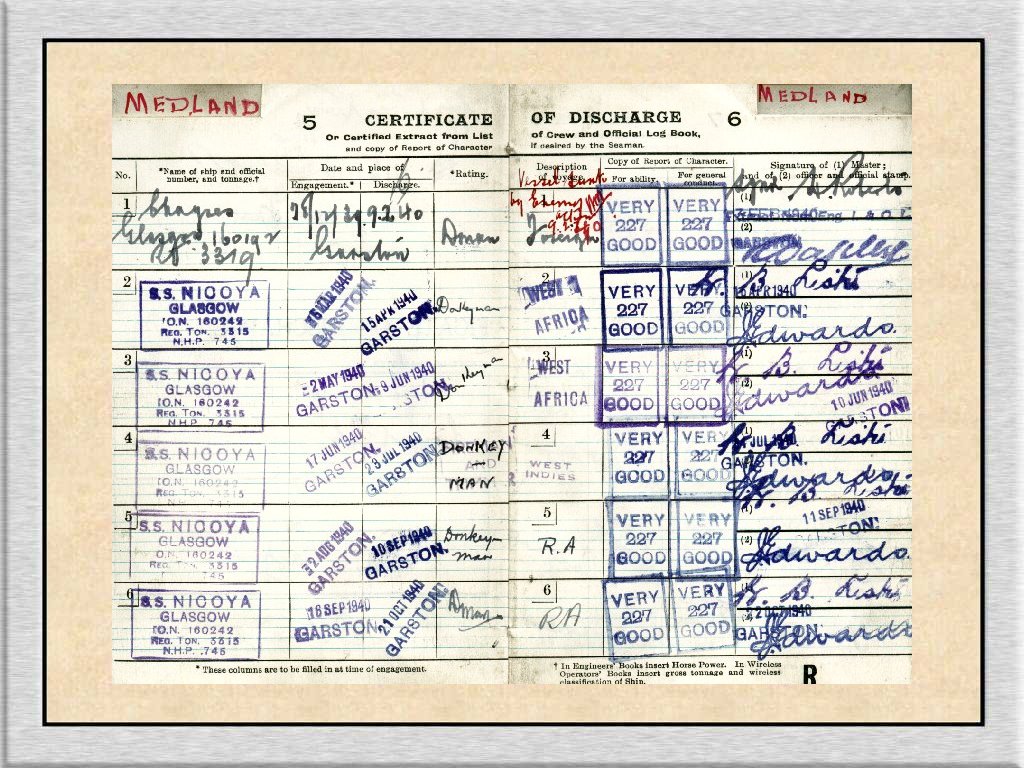 MEDLAND
MEDLAND
5 CERTIFICATE OF DISCHARGE 6
Or Certified Extract from List of Crew and Official Log Book,
and copy of Report of Character if desired by the Seaman.
No.
*Name of ship and official number, and tonnage.†
Date and place of
Engagement.*
Discharge.
*Rating.
Description of voyage.
Copy of Report of Character.
For ability.
For general conduct.
Signature of (1) Master; and of (2) officer and official stamp.
1
Chagres
Glasgow 160192
3319
9.2.40
Garston
Foreign
Vessel Sunk
by Enemy
9.2.40
VERY 227 GOOD
VERY 227 GOOD
(1)
(2)
2
S.S. NICOYA
GLASGOW
O.N. 160242
REG. TON. 3315
N.H.P. 745
GARSTON.
15 APR 1940
GARSTON.
Donkeyman
2
WEST
AFRICA
VERY 227 GOOD
VERY 227 GOOD
(1)
APR 1940
GARSTON.
Edwards.
3
S.S. NICOYA
GLASGOW
O.N. 160242
REG. TON. 3315
N.H.P. 745
2 MAY 1940
GARSTON.
9 JUN 1940
GARSTON.
Donkeyman
3
WEST
AFRICA
VERY 227 GOOD
VERY 227 GOOD
(1)
(2)
Edwards
10 JUN 1940
4
S.S. NICOYA
GLASGOW
O.N. 160242
REG. TON. 3315
17 JUN 1940
GARSTON.
23 JUL 1940
GARSTON
DONKEY
MAN
4
WEST
INDIES
VERY 227 GOOD
VERY 227 GOOD
(1)
JUL 1940
GARSTON.
Edwards.
5
S.S. NICOYA
GLASGOW
O.N. 160242
REG. TON. 3315
745
2 AUG 1940
GARSTON.
10 SEP 1940
GARSTON.
Donkey-
man
5
R.A
VERY 227 GOOD
VERY 227 GOOD
11 SEP 1940
(2)
Edwards.
6
S.S. NICOYA
GLASGOW
O.N. 160242
REG. TON. 3315
N.H.P. 745
16 SEP 1940
GARSTON.
21 OCT 1940
GARSTON.
6
RA
VERY 227 GOOD
VERY 227 GOOD
(1)
22 OCT 1940
GARSTON.
Edwards
* These columns are to be filled in at time of engagement.
† In Engineers' Books insert Horse Power. In Wireless
Operators' Books insert gross tonnage and wireless
classification of Ship.
R